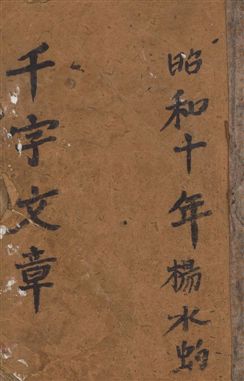 昭和十年楊水
千字文章